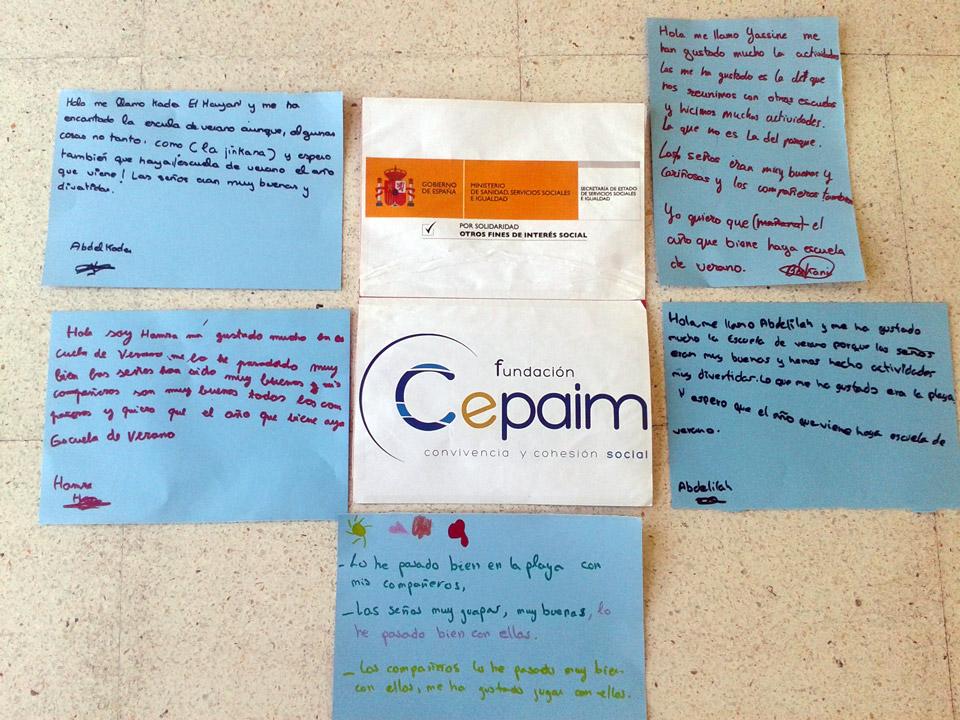 Hola me llamo Kada El Hauyari y me ha
encantado la escula de verano aunque, algunas
cosas no tanto, como (la jinkana) y espero
también que haya escuela de verano el año
que viene! Las seños eran muy buenas y
divertidas.
AbdelKader
GOBIERNO
DE ESPAÑA
MINISTERIO
DE SANIDAD, SERVICIOS SOCIALES
E IGUALDAD
SECRETARÍA DE ESTADO
DE SERVICIOS SOCIALES
E IGUALDAD
POR SOLIDARIDAD
OTROS FINES DE INTERÉS SOCIAL
Hola me llamo Yassine me
han gustado mucho la actividades
Las me ha gustado es la del que
nos reunimos con otras escuelas
y hicimos muchas actividades.
Lo que no es la del parque.
Las seños eran muy buenas y
cariñosas y los compañeros tambien
Yo quiero que (mañana) el
año que biene haya escuela
de verano.
Hola soy Hamza ma gustado mucho en es
cuela de Verano me lo he pasadado muy
bien las seños han sido muy buenas y mis
compañeros son muy buenos todos los com
pañeros y quiero que el año que biene aya
Escuela de Verano
Hamza
fundación
Cepaim
convivencia y cohesión social
Hola, me llamo Abdelilah y me ha gustado
mucho la Escuela de verano porque las seños
eran muy buenas y hemos hecho actividades
muy divertidas. Lo que me ha gustado era la playa
Y espero que el año que viene haya escuela de
verano.
Abdelilah
- Lo he pasado bien en la playa con
mis compañeros,
- Las seños muy guapas, muy buenas, lo
he pasado bien con ellas.
- Los compañeros lo he pasado muy bien
con ellos, me ha gustado jugar con ellos.